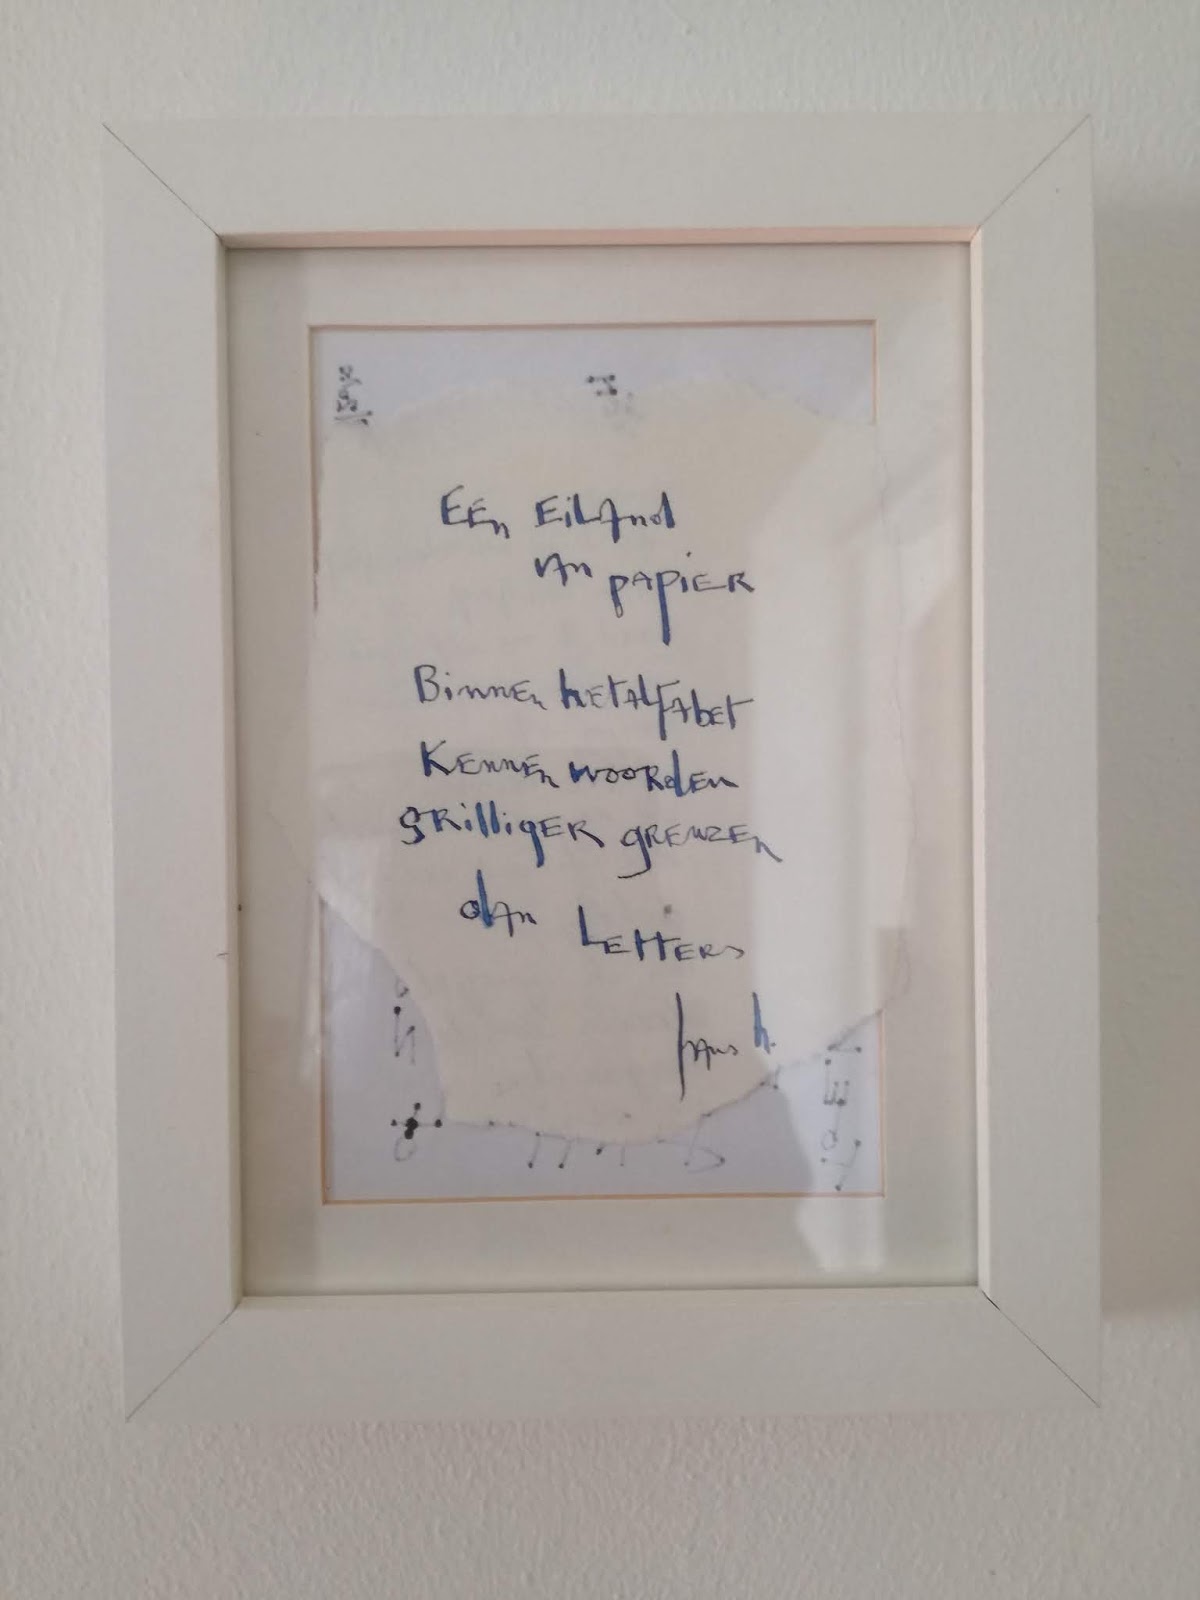 EEn EiLAnd
vAn pApiER
BinnEn hEt ALfAbEt
KEnnEn wooRdEn
gRilligER gREnzEn
dAn LEttERs
hAns h.